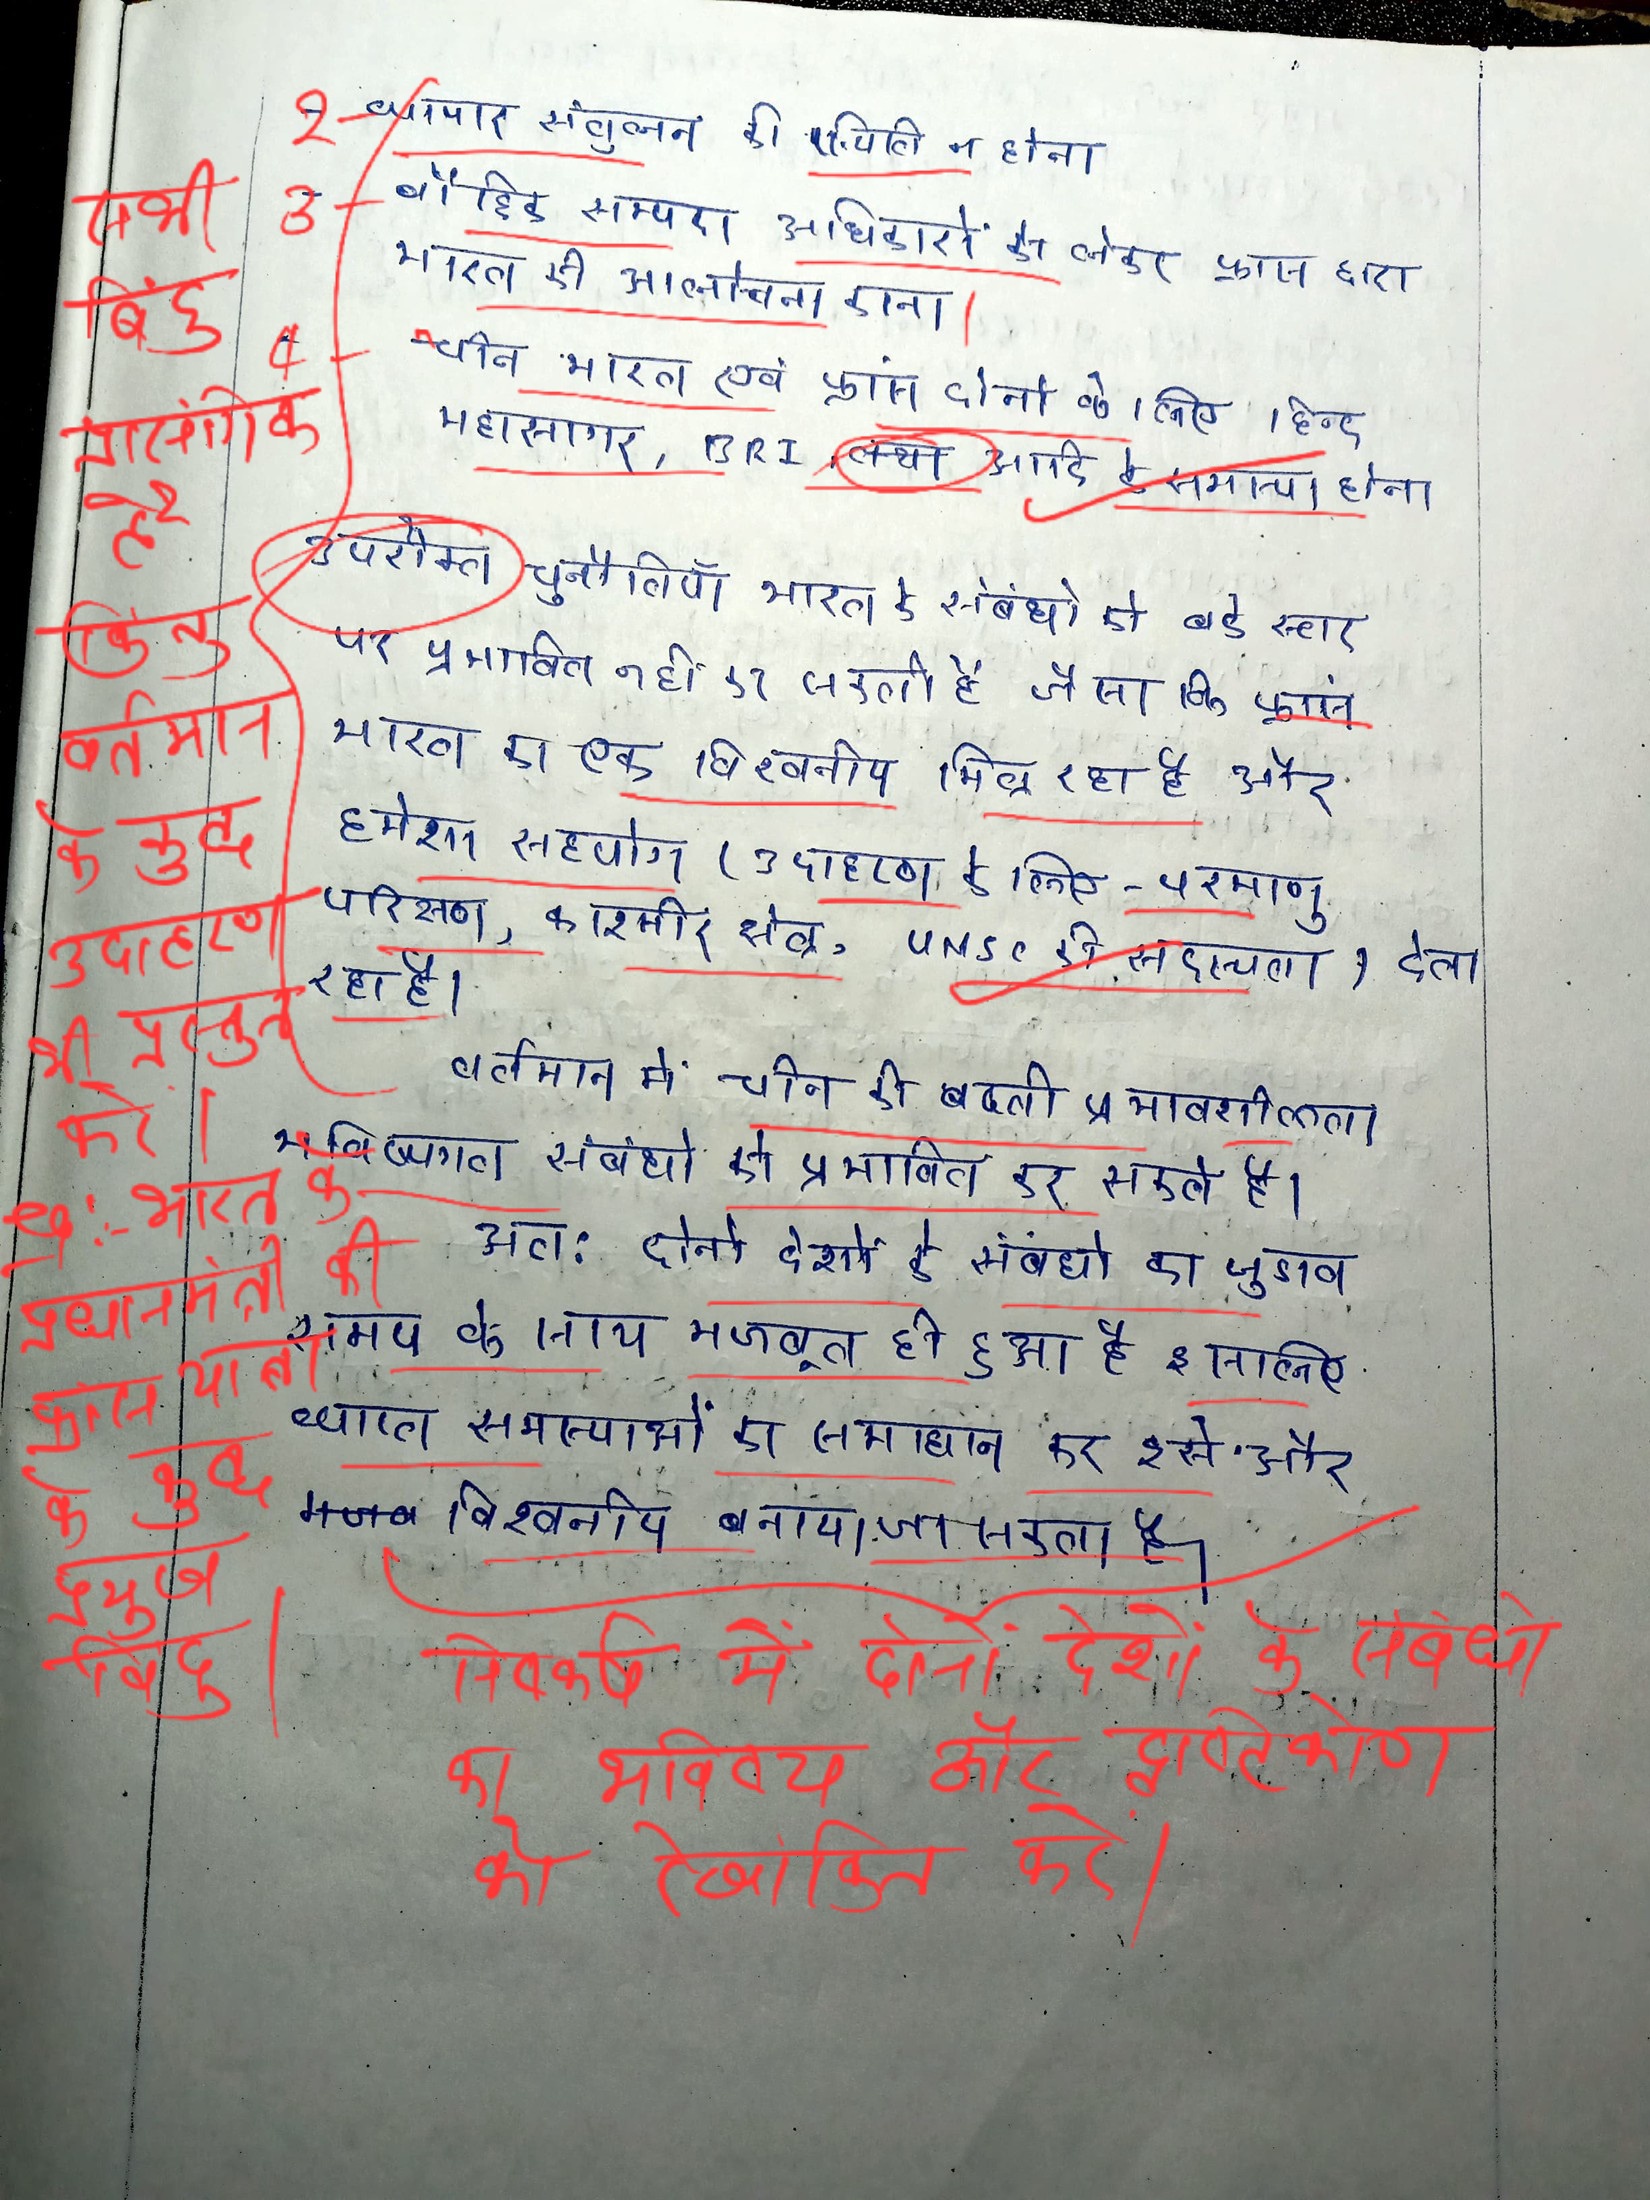 2 - व्यापार संतुलन की स्थिति न होना
3 - बौद्धिक सम्पदा अधिकारों को लेकर फ्रांस द्वारा
भारत की आलोचना करना।
4 - चीन भारत एवं फ्रांस दोनों के लिए हिन्द
महासागर, BRI, तथा आदि के समास्या होना
उपरोक्त चुनौतियाँ भारत के संबंधो को बड़े स्तर
पर प्रभावित नहीं कर सकती है जैसा कि फ्रांस
भारत का एक विश्वनीय मित्र रहा है और
हमेशा सहयोग (उदाहरण के लिए - परमाणु
परिक्षण, काश्मीर क्षेत्र, UNSC की सदस्यता) देता
रहा है।
वर्तमान में चीन की बढ़ती प्रभावशीलता
भविष्यगत संबंधो को प्रभावित कर सकते है।
अतः दोनो देशों के संबंधो का जुडाव
समय के साथ मजबूत ही हुआ है इसलिए
व्याप्त समास्याओं का समाधान कर इसे और
मजब विश्वनीय बनाया जा सकता है।
सभी
बिंदु
प्रासंगिक
है
किन्तु
वर्तमान
के कुछ
उदाहरण
भी प्रस्तुत
करें।
भारत के
प्रधानमंत्री की
फ्रांस यात्रा
के कुछ
प्रमुख
बिंदु।
निष्कर्ष में दोनों देशों के संबंधो
का भविष्य और दृष्टिकोण
को रेखांकित करें।